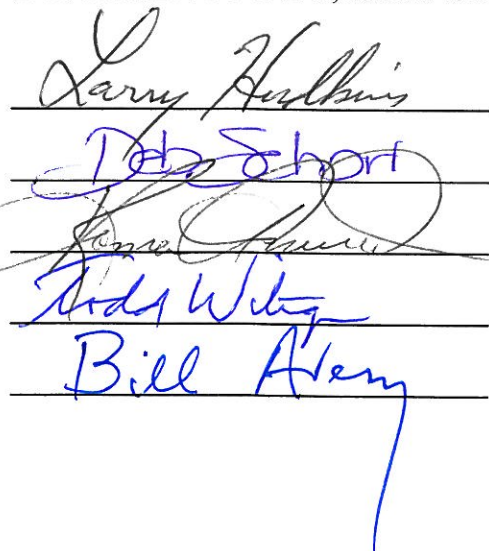 Larry Hudkins
Deb Schorr
Roma
Todd Wiltgen
Bill Avery